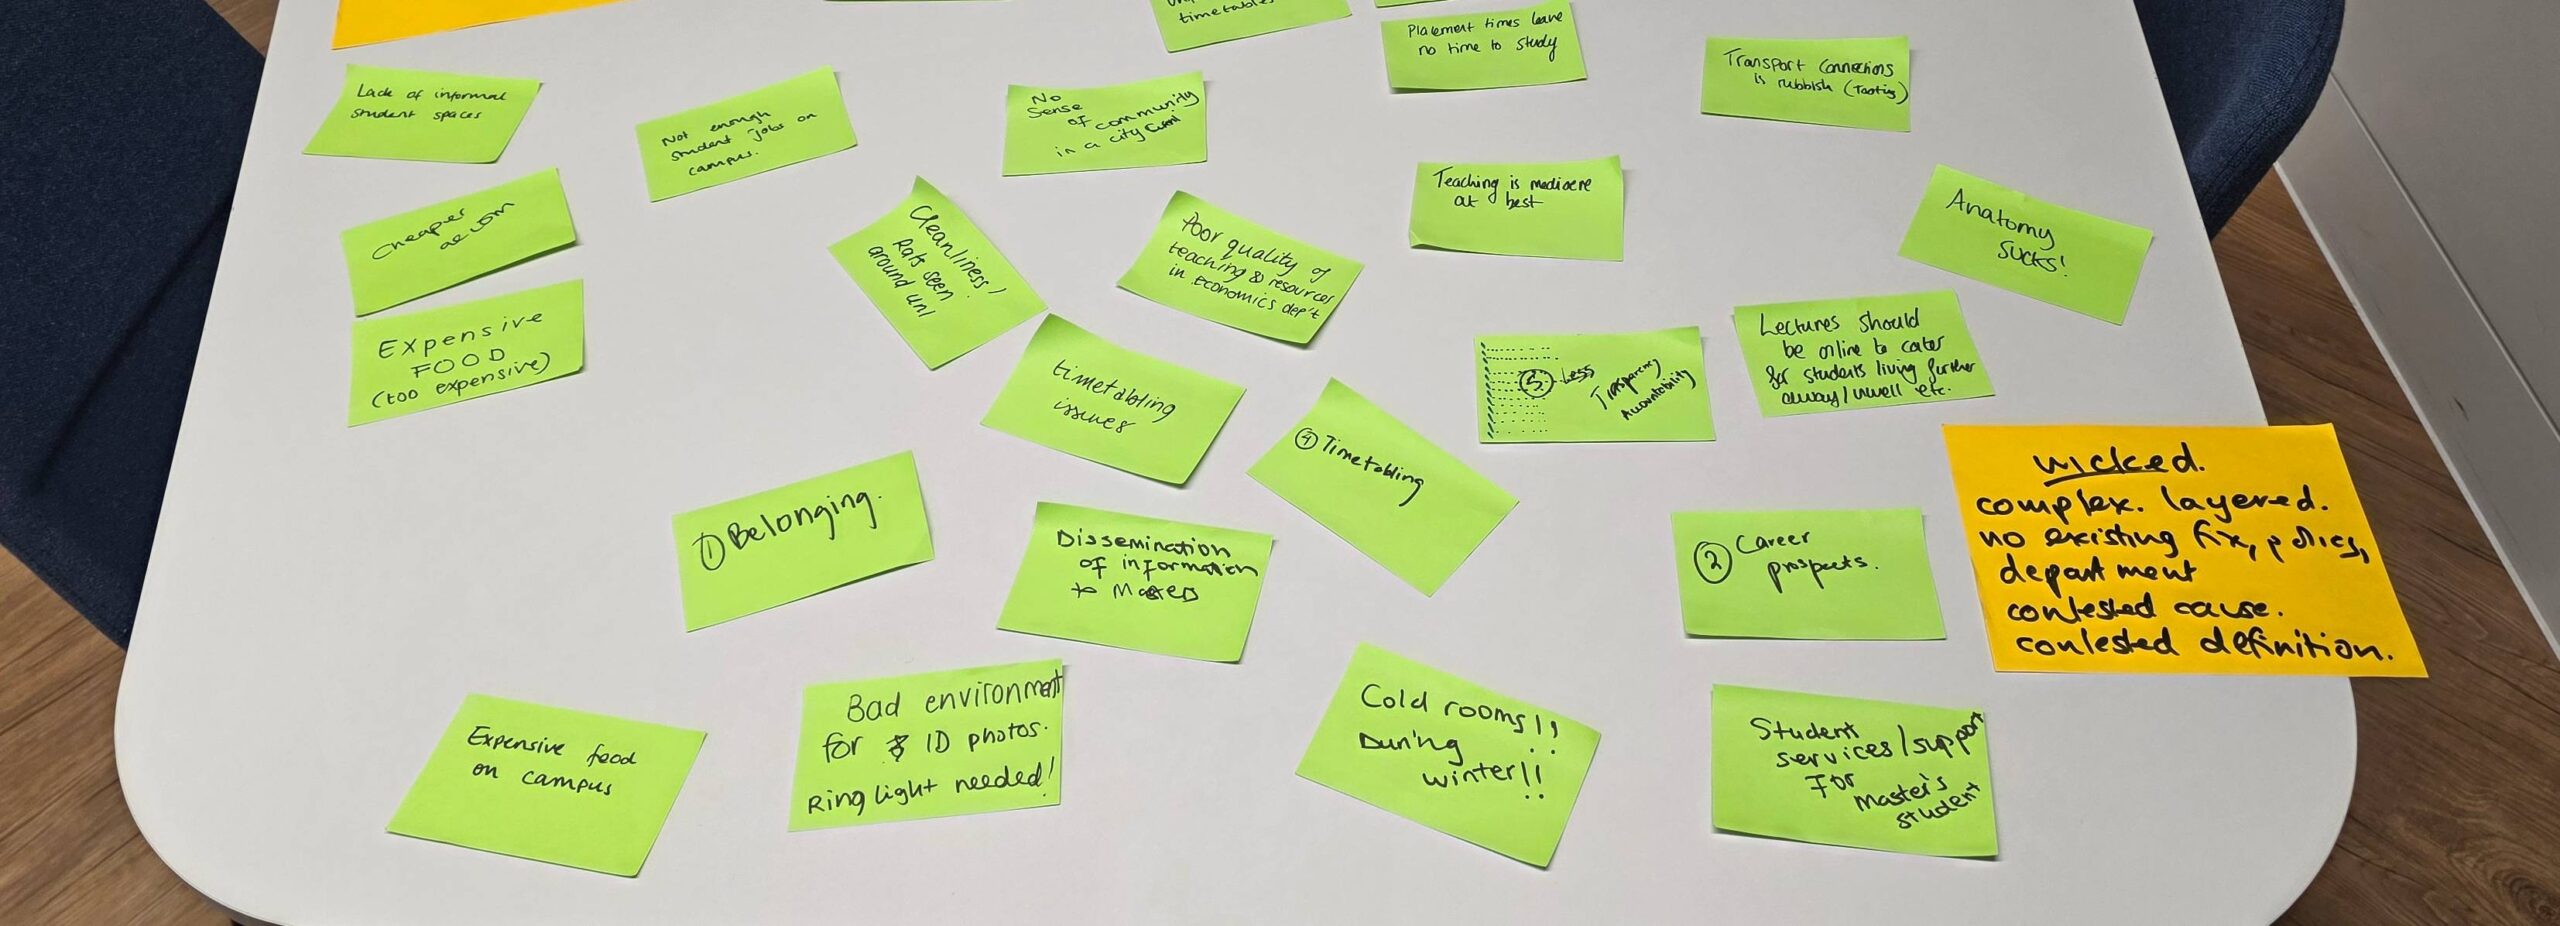 timetables
Placement times leave
no time to study
Transport Connections
is rubbish (Tooting)
Lack of informal
student spaces
Not enough
student jobs on
campus.
No
Sense
of community
in a city
Teaching is mediocre
at best
Anatomy
sucks!
Cheaper
accom
Cleanliness/
Rats seen
around uni
Poor quality of
teaching & resources
in Economics dep't
EXPENSIVE
FOOD
(too expensive)
timetabling
issues
④ Timetabling
⑤ Less
Transparency
Accountability
Lectures should
be online to cater
for students living further
away/unwell etc.
wicked.
complex. layered.
no existing fix, policy,
department
contested cause.
contested definition.
① Belonging.
Dissemination
of information
to Masters
② Career
prospects.
Expensive food
on campus
Bad environment
for ID photos.
Ring light needed!
Cold rooms!!
During
winter!!
Student
services/support
For
master's
student